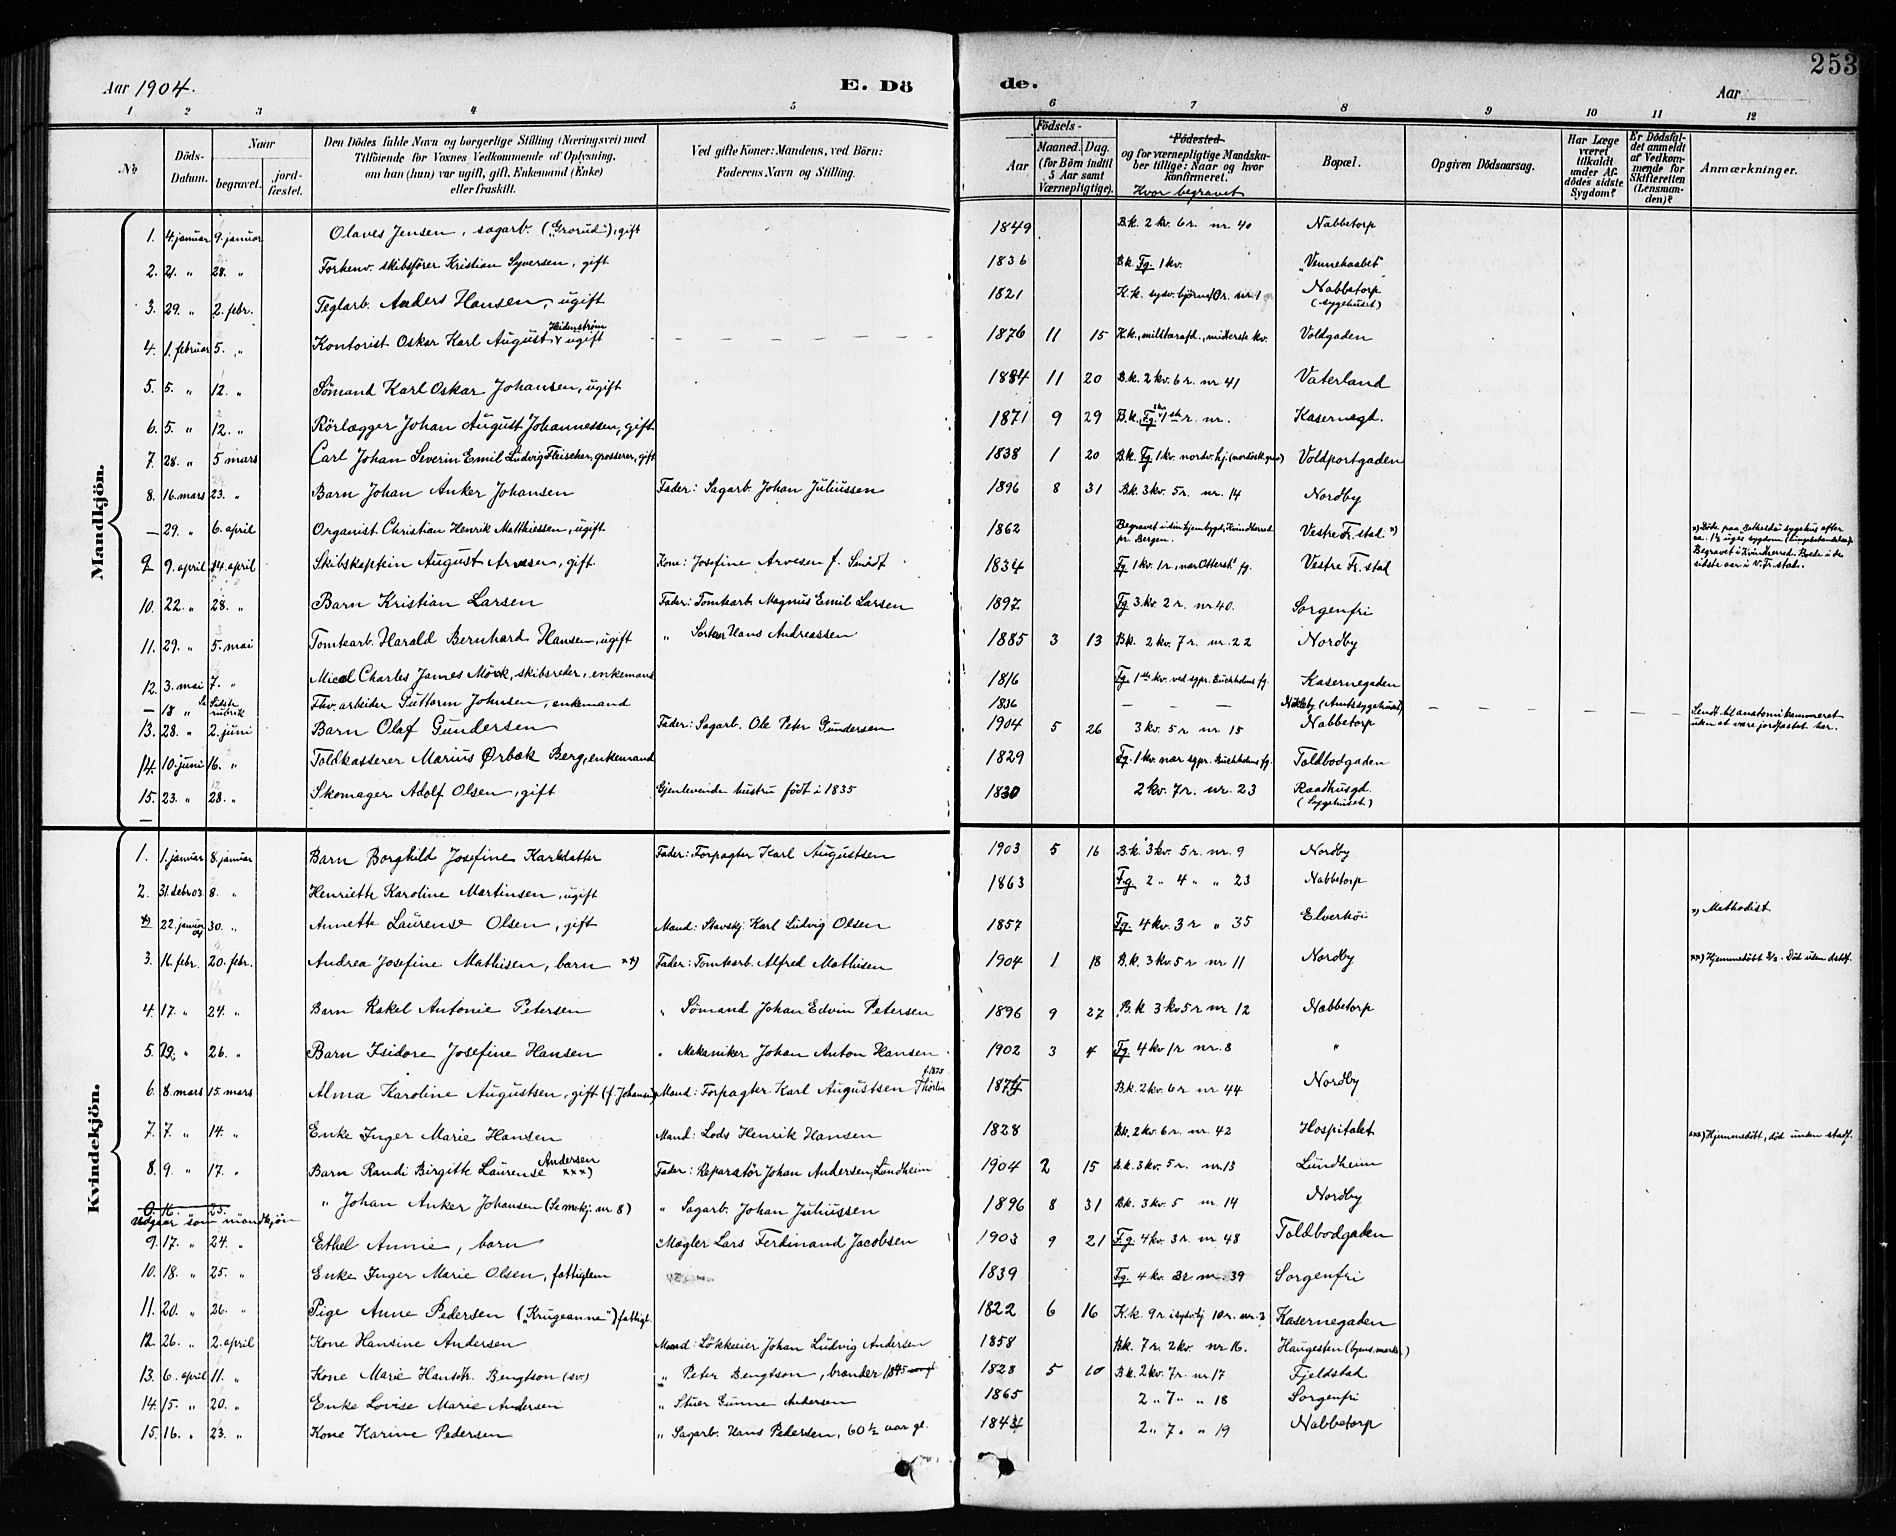 Aar 1904.
E. Döde.
253
Aar
1 2 3 4 5 6 7 8 9 10 11 12
No
Döds-Datum.
Naar begravet. jord-fæstet.
Den Dödes fulde Navn og borgerlige Stilling (Næringsvei) med Tilföiende for Voxnes Vedkommende af Oplysning, om han (hun) var ugift, gift, Enkemand (Enke) eller fraskilt.
Ved gifte Koner: Mandens, ved Börn: Faderens Navn og Stilling.
Födsels-
Aar Maaned. Dag. (for Börn indtil 5 Aar samt Værnepligtige).
Födested og for værnepligtige Mandska-ber tillige: Naar og hvor konfirmeret.
Hvor begravet
Bopæl.
Opgiven Dödsaarsag.
Har Læge været tilkaldt under Af-dödes sidste Sygdom?
Er Dödsfal-det anmeldt af Vedkom-mende for Skifteretten (Lensman-den)?
Anmærkninger.
Mandkjön.
1. 4 januar 9. januar Olaves Jensen, sagarb. ("Grorud"), gift 1849 B.k. 2 kv. 6 r. nr 40 Nabbetorp
2. 21. " 28. " Forhenv. skibsförer Kristian Syversen, gift 1836 B.k. Fg. 1 kv. "Vennehaabet"
3. 29. " 2. febr. Teglarb. Anders Hansen, ugift 1821 K.k. sydv. hjörne Nabbetorp (sygehuset)
4. 1. februar 5. " Kontorist Oskar Karl August Heidenström, ugift 1876 11 15 K.k., militærafd., midterste kv. Voldgaden
5. 5. " 12. " Sömand Karl Oskar Johansen, ugift 1884 11 20 B.k. 2 kv. 6 r. nr 41 Vaterland
6. 5. " 12. " Rörlægger Johan August Johannessen, gift 1871 9 29 B.k. Fg. 1ste r. nr. Kasernegd.
7. 28. " 5 mars Carl Johan Severin Emil Ludvig Fleischer, grosserer, gift 1838 1 20 B.k. Fg 1 kv. nordv. hj. Voldportgaden
8. 16. mars 23. " Barn Johan Anker Johansen Fader: Sagarb. Johan Juliussen 1896 8 31 B.k. 3 kv. 5 r. nr. 14 Nordby
— 29. " 6. april Organist Christian Henrik Matthiessen, ugift 1862 Begravet i sin hjembygd, Kvindherred pr. Bergen. Vestre Fr.stad x) x) Döde paa Bethesda sygehus efter ca. 1½ uges sygdom Begravet i Kvindherred. Boede i de sidste aar i V. Fr.stad.
9. 9. april 14. april Skibskaptein August Arvesen, gift Kone: Josefine Arvesen f. Smidt 1834 Fg 1 kv. 1 r., nær fg. Vestre Fr.stad
10. 22. " 28. " Barn Kristian Larsen Fader: Tomtearb. Magnus Emil Larsen 1897 Fg 3 kv. 2 r. nr 40. Sorgenfri
11. 29. " 5. mai Tomtearb. Harald Bernhard Hansen, ugift " Hans Andreassen 1885 3 13 B.k. 2 kv. 7 r. nr. 22 Nordby
12. 3. mai 7. " Charles James Mörk, skibsreder, enkemand 1816 Fg. 1ste kv. ved sgpr. Buchholms fg. Kasernegaden
— 18 " Se Sidste rubrik Fhv. arbeider Guttorm Johnsen, enkemand 1836 — — — (Amtssygehuset) Sendt til anatomikammeret uten at være jordfæstet her.
13. 28. " 2. juni Barn Olaf Gundersen Fader: Sagarb. Ole Peter Gundersen 1904 5 26 3 kv. 5 r nr 15 Nabbetorp
14. 10. juni 16. " Toldkasserer Marius Ørbæk Berg, enkemand 1829 Fg. 1 kv. nær sgpr. Buchholms fg. Toldbodgaden
15. 23. " 28. " Skomager Adolf Olsen, gift Gjenlevende hustru født i 1835 1830 2 kv. 7 r. nr. 23 Raadhusgd. (Sygehuset)
Kvindekjön.
1. 1. januar 8. januar Barn Borghild Josefine Karlsdatter Fader: Forpagter Karl Augustsen 1903 5 16 B.k. 3 kv. 5 r. nr. 9 Nordby
2. 31 debr 03. 8. " Henriette Karoline Martinsen, ugift 1863 Fg 2 " 4 " " 23 Nabbetorp
x) 22. januar 30. " Annette Laurense Olsen, gift Mand: Stavskj. Karl Ludvig Olsen 1857 Fg. 4 kv. 3 r " 35 Elverhöi x) Methodist
3. 16. febr. 20. febr. Andrea Josefine Mathisen, barn xx) Fader: Tomtearb. Alfred Mathisen 1904 1 18 B.k. 3 kv. 5 r nr 11 Nordby xx) Hjemmedöbt Död uden
4. 17. " 24. " Barn Rakel Antonie Petersen " Sömand Johan Edvin Petersen 1896 9 27 B.k 3 kv 5 r nr 12 Nabbetorp
5. 19. " 26. " Barn Isidore Josefine Hansen " Mekaniker Johan Anton Hansen 1902 3 4 Fg. 4 kv 1 r nr. 8 "
6. 8 mars 15. mars Alma Karoline Augustsen, gift (f. Johansen) Mand: Forpagter Karl Augustsen f. 1875 1874 B.k. 2 kv. 6 r nr 44 Nordby
7. 7. " 14. " Enke Inger Marie Hansen Mand: Lods Henrik Hansen 1828 B.k. 2 kv. 6 r. nr. 42 Hospitalet
8. 9. " 17. " Barn Randi Birgitte Laurense Andersen xxx) Fader: Reparatör Johan Andersen, Lundheim 1904 2 15 B.k. 3 kv. 5 r. nr. 13 Lundheim xxx) Hjemmedöbt, död uden stadf.
9. 16. 23. Udgaar som mandkjön " Johan Anker Johansen (Se mkj. nr 8) " Sagarb. Johan Juliussen 1896 8 31 B.k. 3 kv. 5 nr. 14 Nordby
9. 17. " 24. " Ethel Annie, barn " Mægler Lars Ferdinand Jacobsen 1903 9 21 Fg. 4 kv. 3 r. nr 48 Toldbodgaden
10. 18. " 25. " Enke Inger Marie Olsen, fattiglem 1839 Fg. 4 kv. 3 r. nr. 39 Sorgenfri
11. 20. " 26. " Pige Anne Pedersen ("Krugeanne") fattigl. 1822 6 16 K.k. 9 r. 10 r. nr. 3 Kasernegaden
12. 26. " 2. april Kone Hansine Andersen Mand: Løkkeeier Johan Ludvig Andersen 1858 B.k. 7 r. 2 kv. nr 16. Haugesten (byens marker)
13. 6. april 11. " Kone Marie Hansdr. Bengtson (sv.) " Peter Bengtson, brænder 1845 1828 5 10 B.k. 2 kv. 7 r. nr 17 Fjeldstad
14. 15. " 20. " Enke Lovise Marie Andersen " Stuer Gunne Andersen 1865 2 " 7 " " 18 Sorgenfri
15. 16. " 23. " Kone Karine Pedersen " Sagarb. Hans Pedersen, 60½ aar gl. 1843 2 " 7 " " 19 Nabbetorp